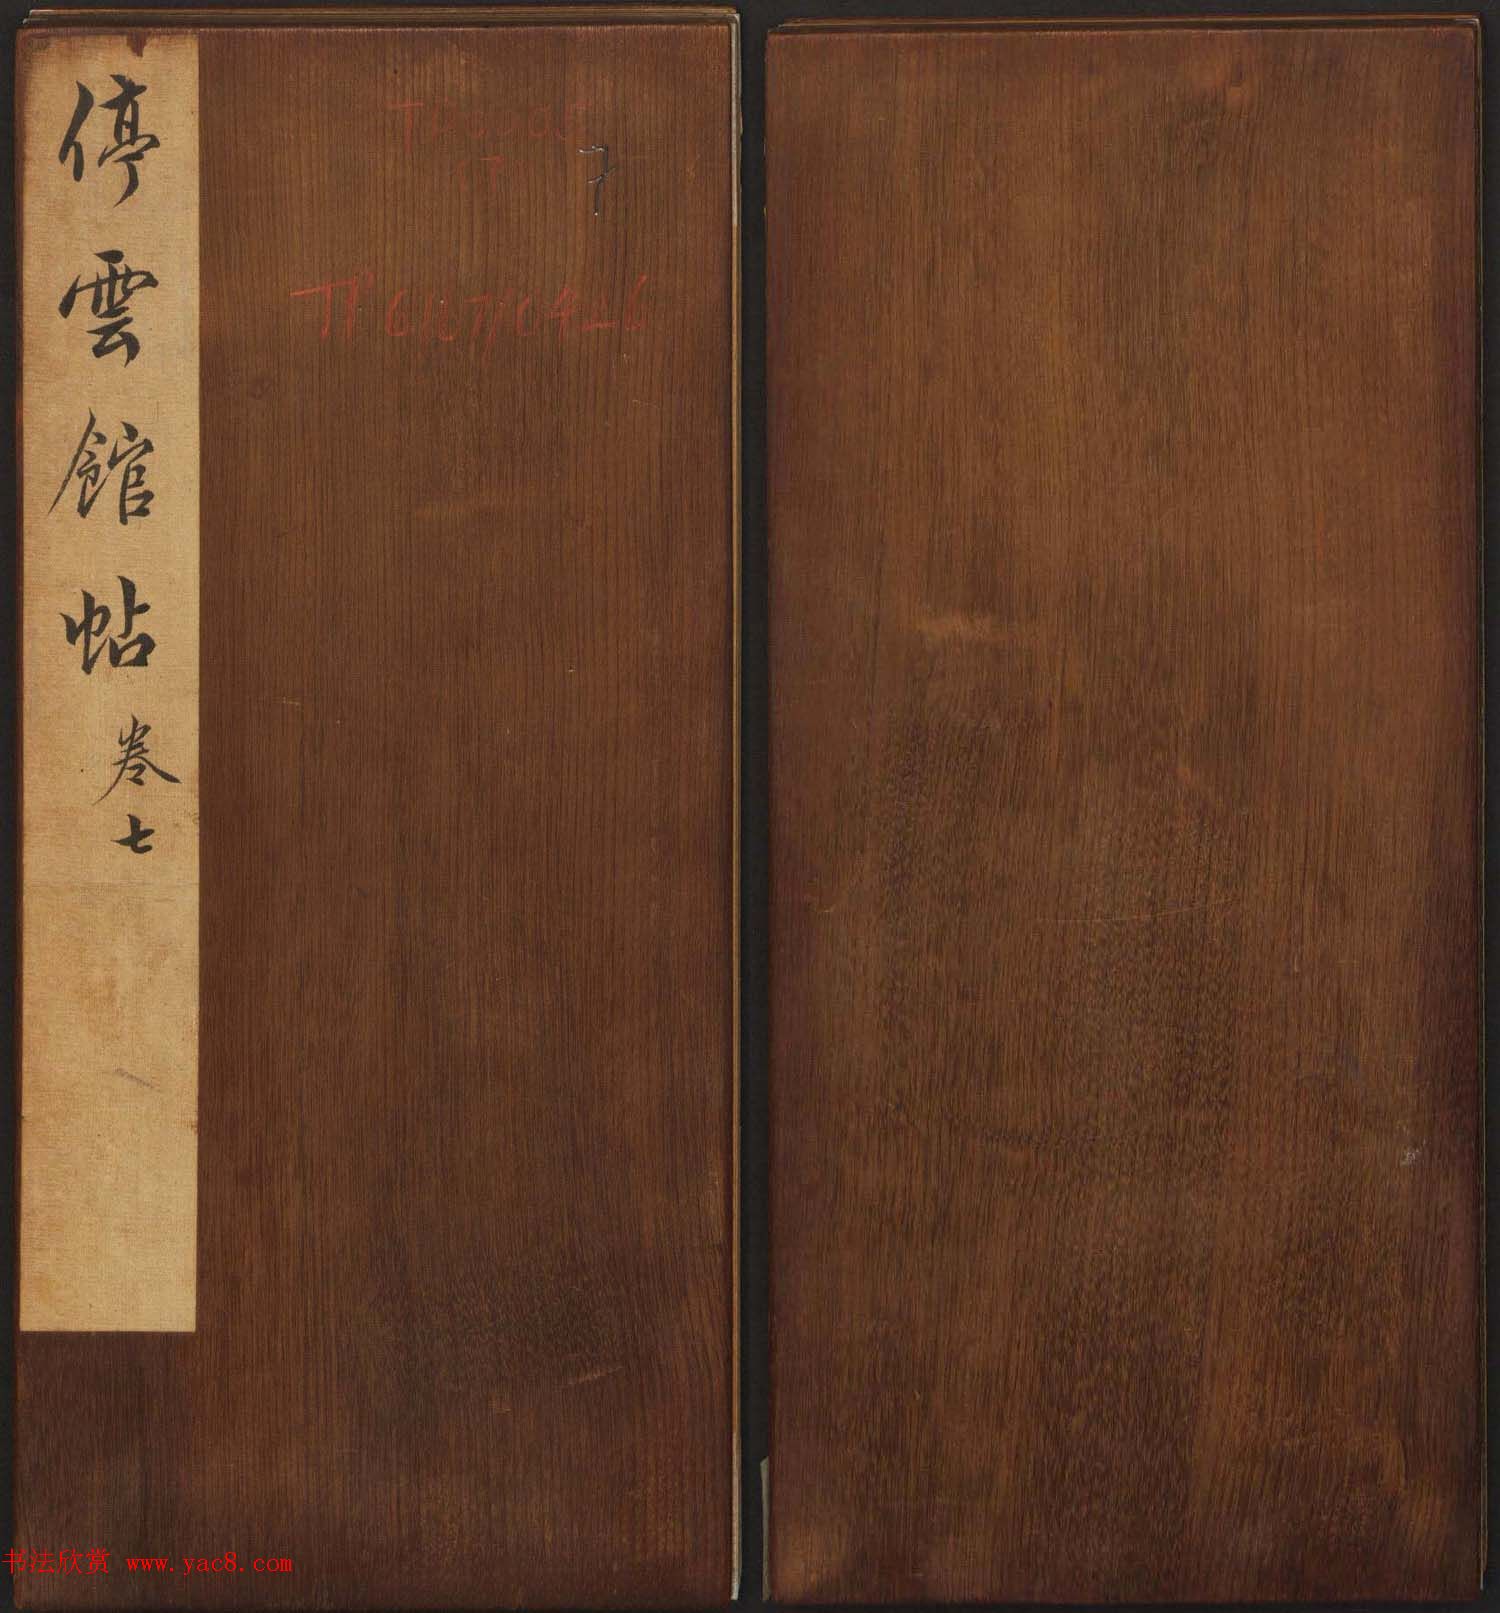 停雲館帖 卷七
7
TP6167/0424-6
书法欣赏 www.yac8.com